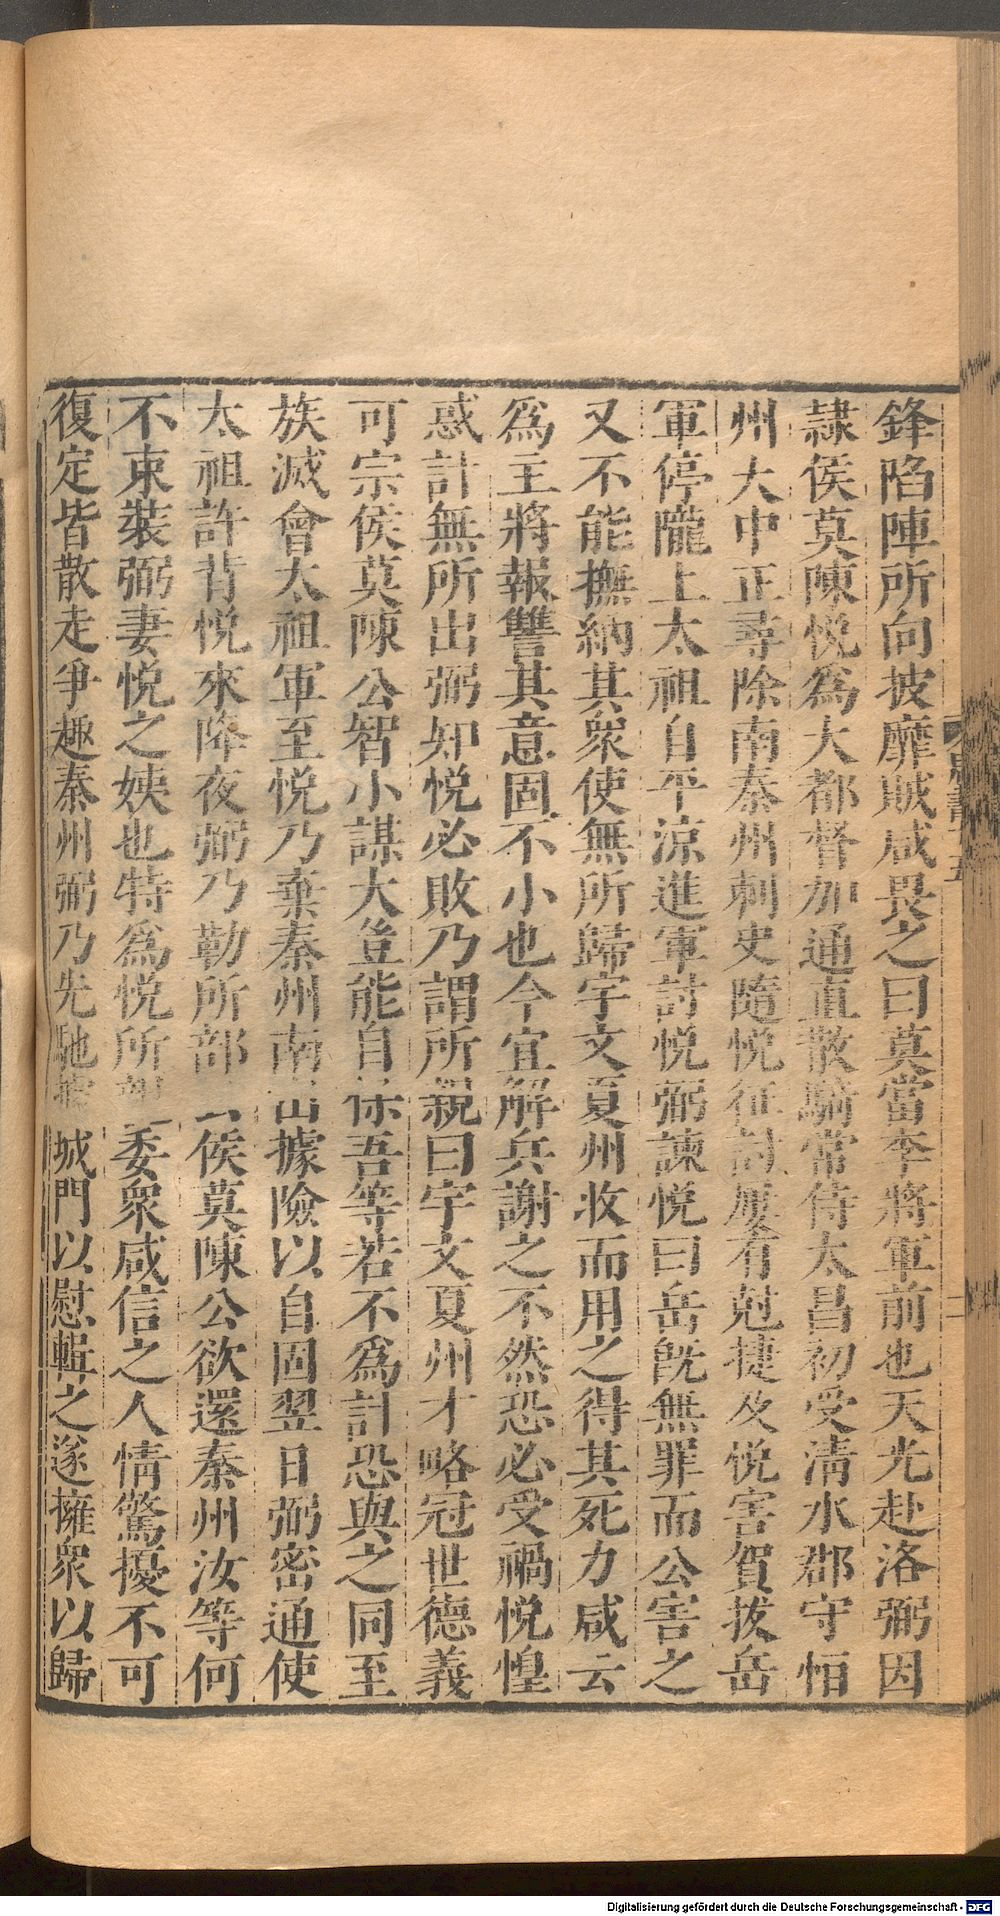 鋒陷陣所向披靡賊咸畏之曰莫當李將軍前也天光赴洛弼因
隷侯莫陳悅爲大都督加通直散騎常侍太昌初受淸水郡守恒
州大中正尋除南秦州刺史隨悅征討屢有尅捷及悅害賀拔岳
軍停隴上太祖自平涼進軍討悅弼諫悅曰岳旣無罪而公害之
又不能撫納其衆使無所歸宇文夏州收而用之得其死力咸云
爲主將報讐其意固不小也今宜解兵謝之不然恐必受禍悅惶
惑計無所出弼知悅必敗乃謂所親曰宇文夏州才略冠世德義
可宗侯莫陳公智小謀大豈能自保吾等若不爲計恐與之同至
族滅會太祖軍至悅乃棄秦州南出據險以自固翌日弼密通使
太祖許背悅來降夜弼乃勒所部云侯莫陳公欲還秦州汝等何
不束裝弼妻悅之姨也特爲悅所親委衆咸信之人情驚擾不可
復定皆散走爭趣秦州弼乃先馳據城門以慰輯之遂擁衆以歸
Digitalisierung gefördert durch die Deutsche Forschungsgemeinschaft - DFG